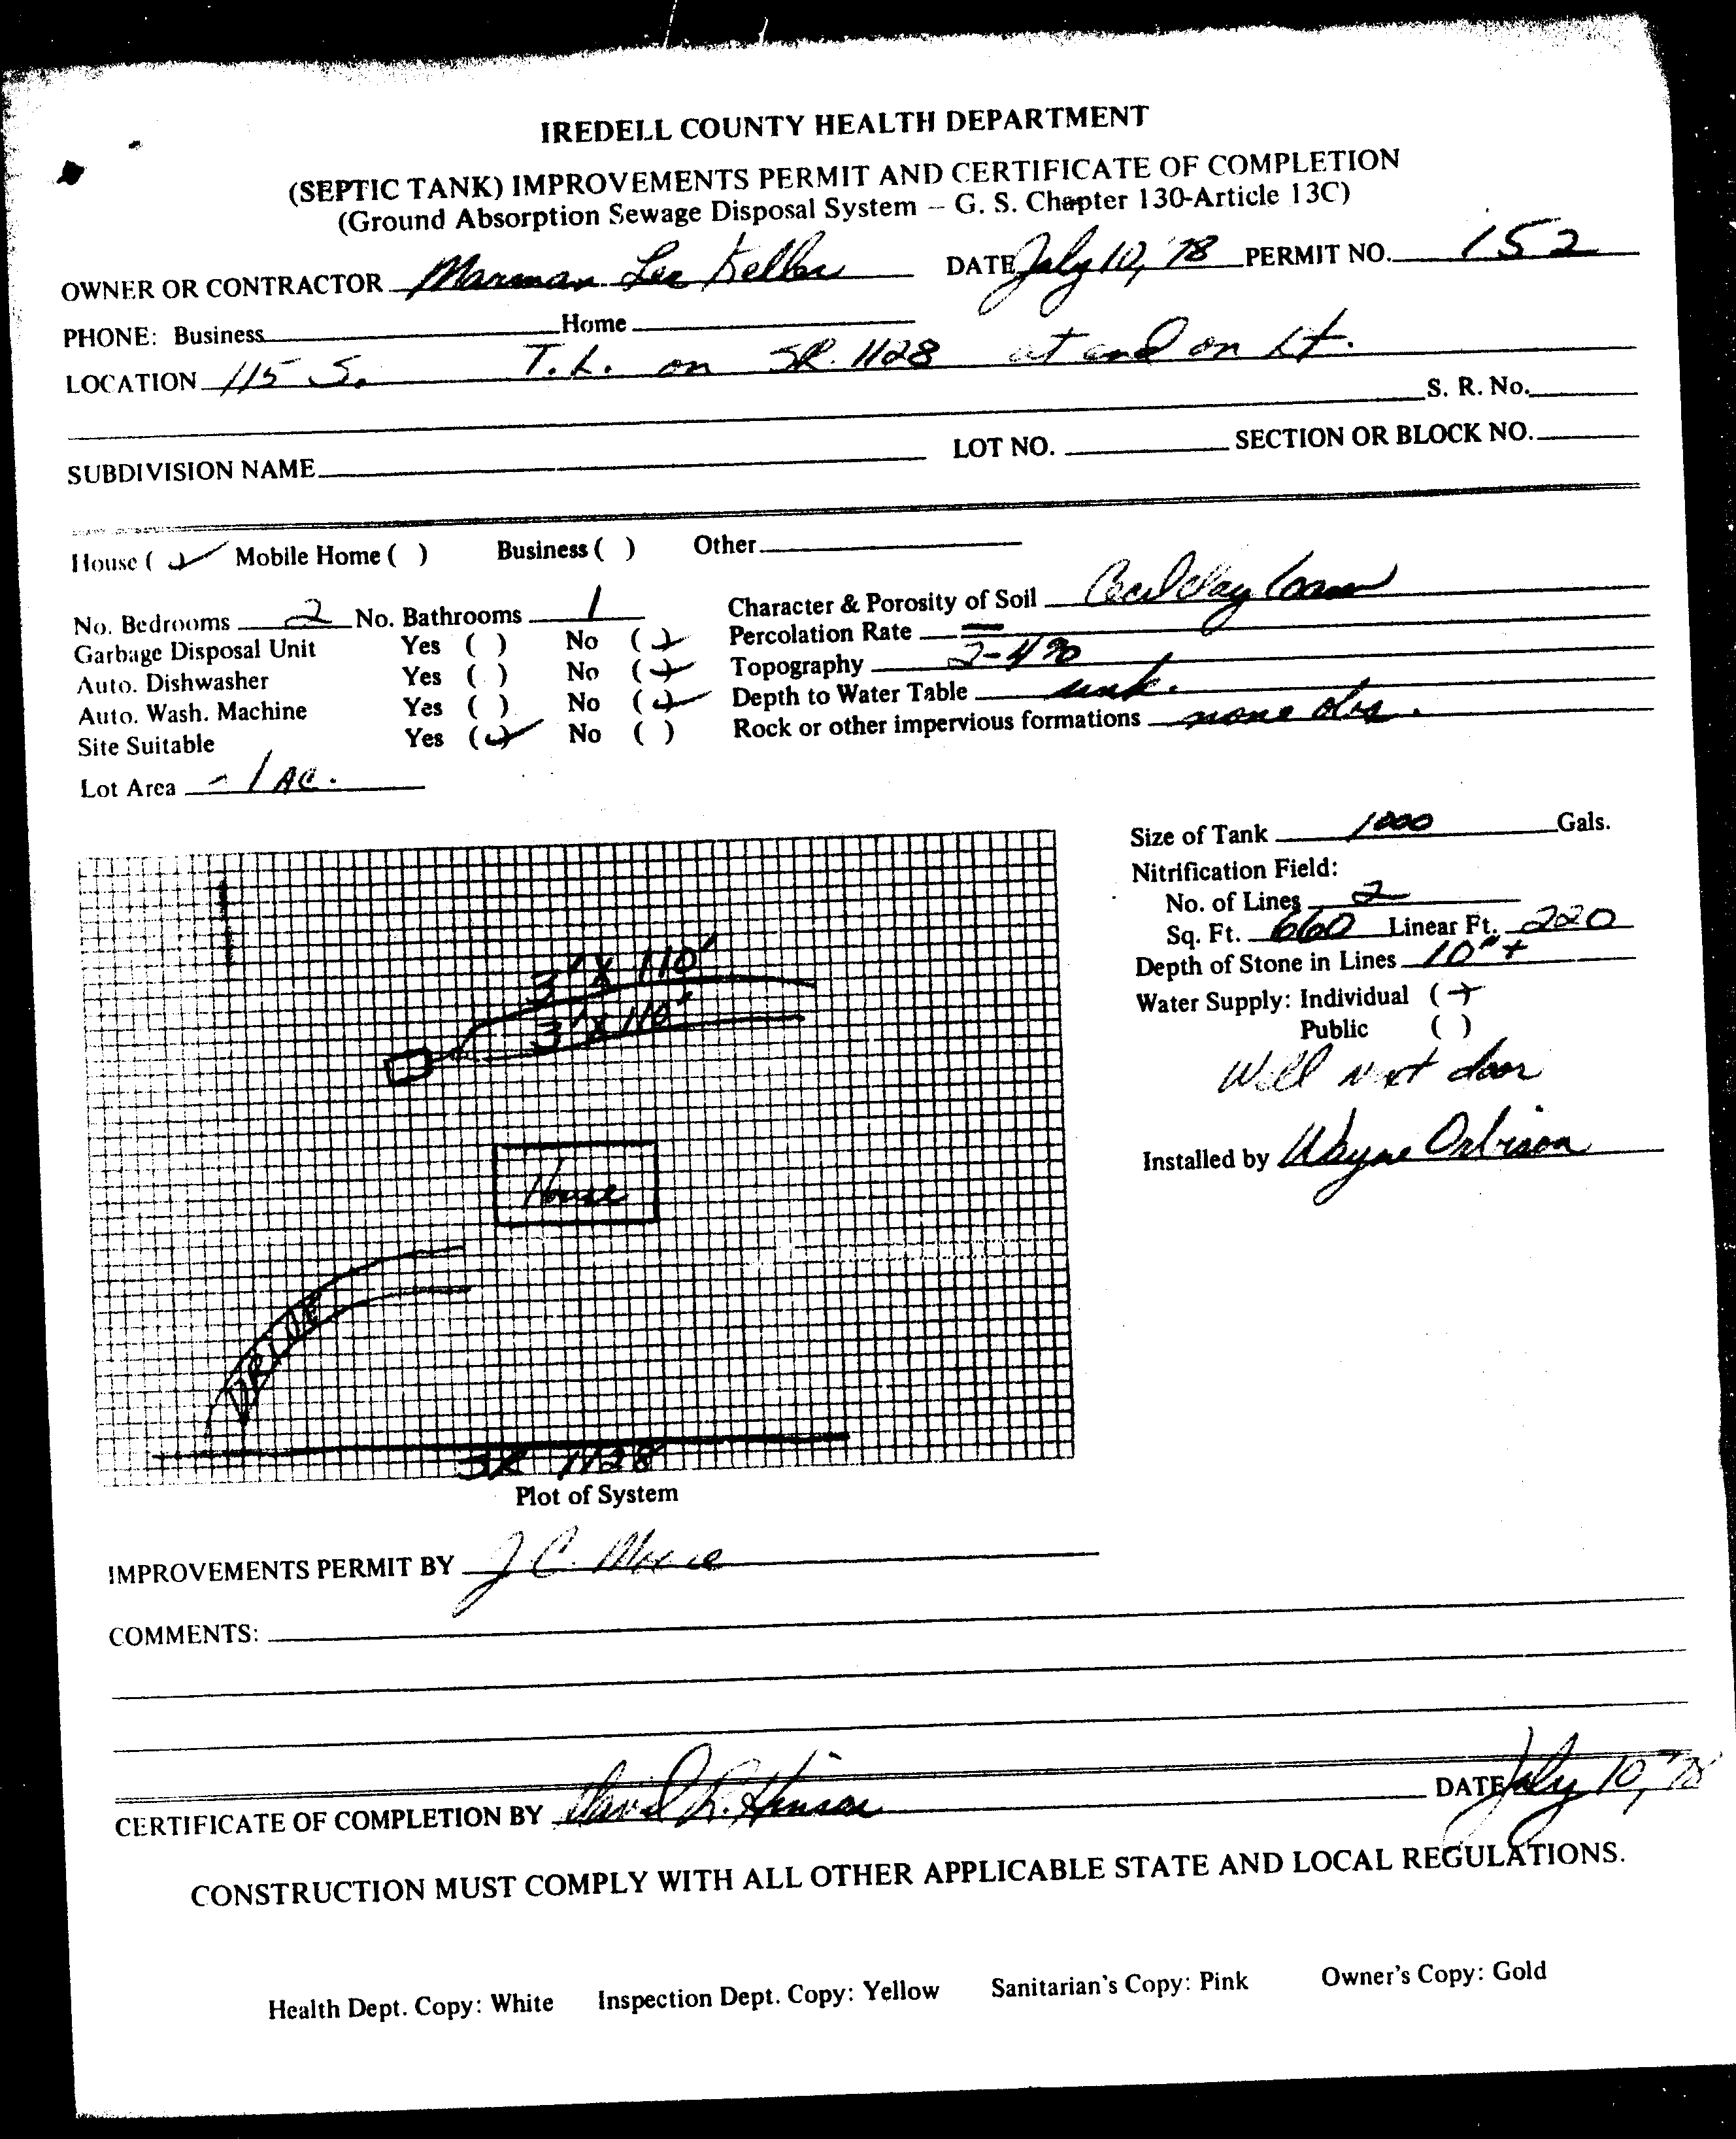 IREDELL COUNTY HEALTH DEPARTMENT
(SEPTIC TANK) IMPROVEMENTS PERMIT AND CERTIFICATE OF COMPLETION
(Ground Absorption Sewage Disposal System – G. S. Chapter 130-Article 13C)
OWNER OR CONTRACTOR Marman Lee Keller DATE July 10, '78 PERMIT NO. 152
PHONE: Business Home
LOCATION 115 S. T. L. on SR. 1128 at end on Lt.
S. R. No.
SUBDIVISION NAME LOT NO. SECTION OR BLOCK NO.
House ( ✓ Mobile Home ( ) Business ( ) Other
No. Bedrooms 2 No. Bathrooms 1 Character & Porosity of Soil Cecil Clay loam
Garbage Disposal Unit Yes ( ) No (✓) Percolation Rate —
Auto. Dishwasher Yes ( ) No (✓) Topography 2-4%
Auto. Wash. Machine Yes ( ) No (✓) Depth to Water Table unk.
Site Suitable Yes (✓) No ( ) Rock or other impervious formations none obs.
Lot Area - 1 AC.
Size of Tank 1000 Gals.
Nitrification Field:
No. of Lines 2
Sq. Ft. 660 Linear Ft. 220
Depth of Stone in Lines 10"+
Water Supply: Individual (✓)
Public ( )
Well next door
Installed by Wayne Orbison
3' X 110'
3' X 110'
House
DRIVE
SR 1128
Plot of System
IMPROVEMENTS PERMIT BY J C.
COMMENTS:
CERTIFICATE OF COMPLETION BY David L. Hinson DATE July 10, '78
CONSTRUCTION MUST COMPLY WITH ALL OTHER APPLICABLE STATE AND LOCAL REGULATIONS.
Health Dept. Copy: White Inspection Dept. Copy: Yellow Sanitarian's Copy: Pink Owner's Copy: Gold